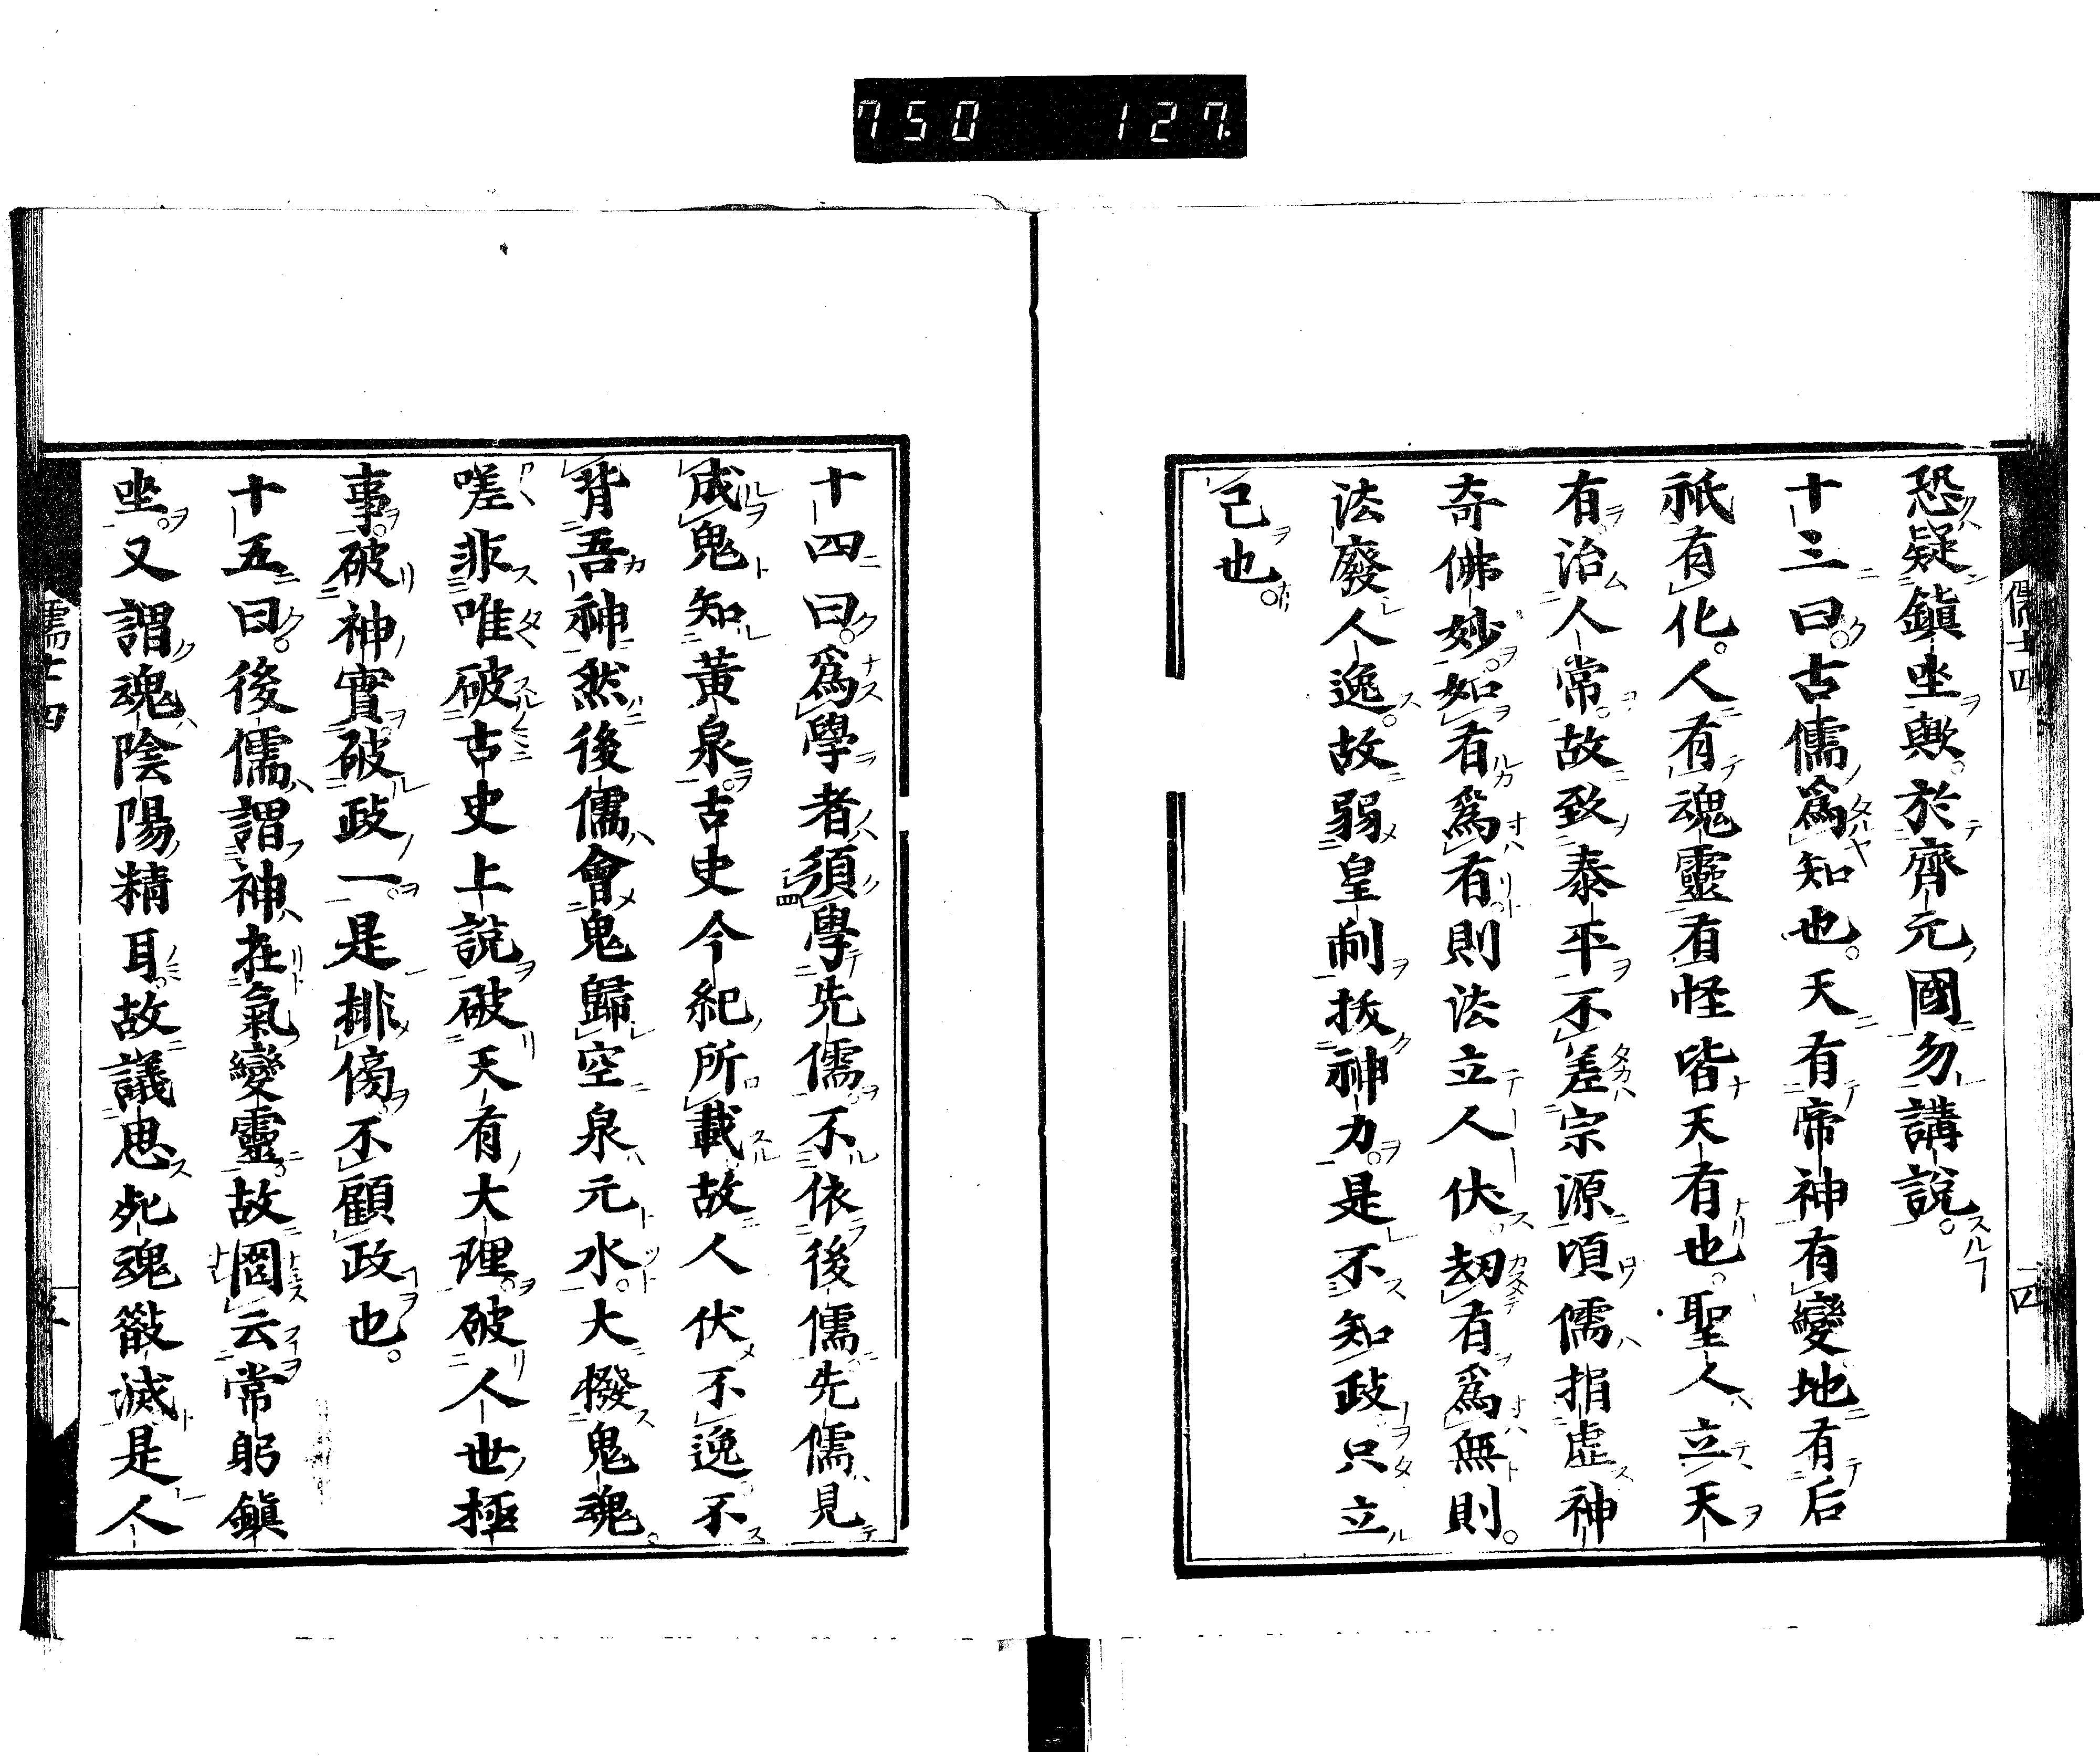 750 127
恐疑鎮坐歟。於齊元國勿講說。
十三曰。古儒爲知也。天有帝神有變地有后
祇有化。人有魂靈有怪皆天有也。聖人立天
有治人常。故致泰平不差宗源頃儒指虛神
奇佛妙。如有爲有則法立人伏。劫有爲無則。
法廢人逸。故弱皇制拔神力。是不知政只立
己也。
十四曰。爲學者須學先儒。不依後儒先儒見
成鬼知黃泉。古史今紀所載故人伏不逸不
背吾神然後儒會鬼歸空泉元水。大撥鬼魂。
嗟非唯破古史上說破天有大理。破人世極
事。破神實破政一。是排傍。不顧政也。
十五曰。後儒謂神在氣變靈。故罔云常躬鎮
坐。又謂魂陰陽精耳。故議思死魂散滅是人